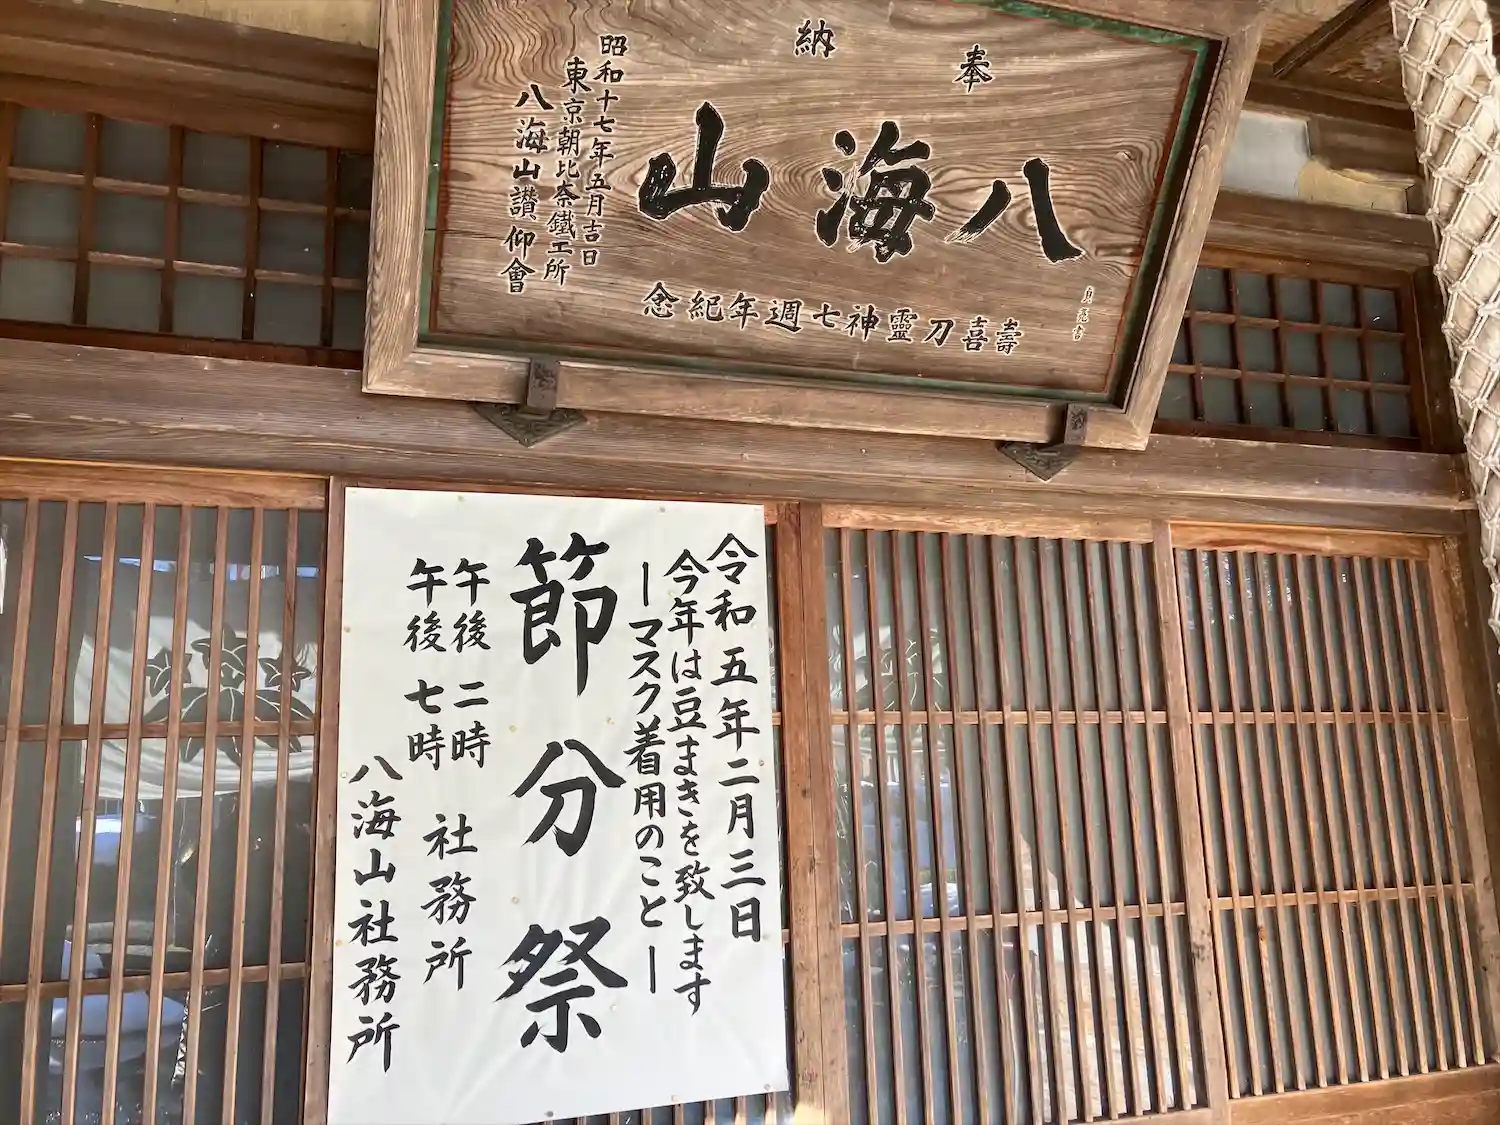 奉納
八海山
貞亮書
壽喜刀靈神七週年紀念
昭和十七年五月吉日
東京朝比奈鐵工所
八海山讃仰會
令和五年二月三日
今年は豆まきを致します
ーマスク着用のことー
節分祭
午後二時 社務所
午後七時
八海山社務所